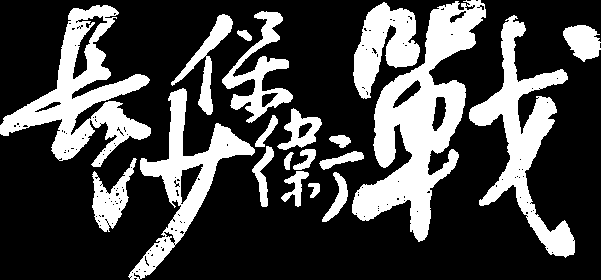 長沙保衛戰